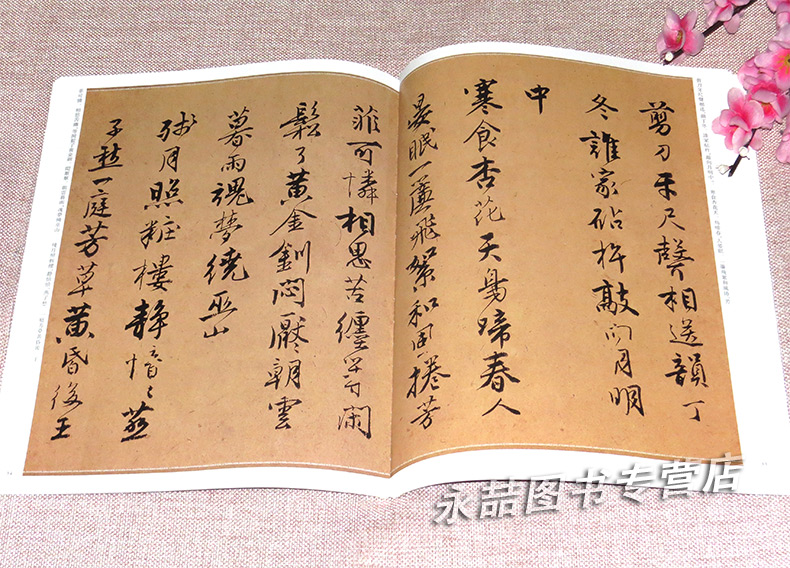 剪刀牙尺聲相送韻丁
冬誰家砧杵敲向月明
中
寒食杏花天鳥啼春人
晏眠一簾飛絮和風捲芳
菲可憐相思苦纏
鬆了黃金釧悶厭朝雲
暮雨魂夢繞巫山
殘月照粧樓靜愔〻燕
子愁一庭芳草黃昏後王
永喆图书专营店